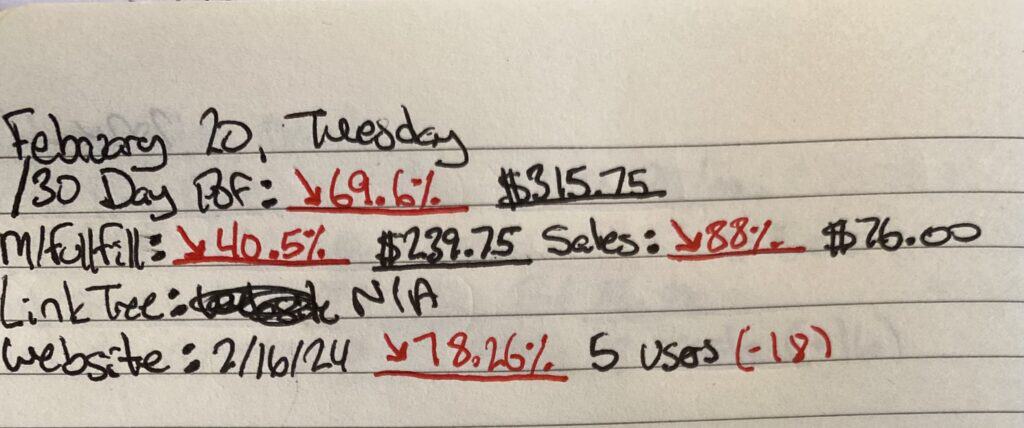 February 20, Tuesday
/30 Day BF: ↘69.6% $315.75
M/fullfill: ↘40.5% $239.75 Sales: ↘88% $76.00
Link Tree: N/A
Website: 2/16/24 ↘78.26% 5 users (-18)